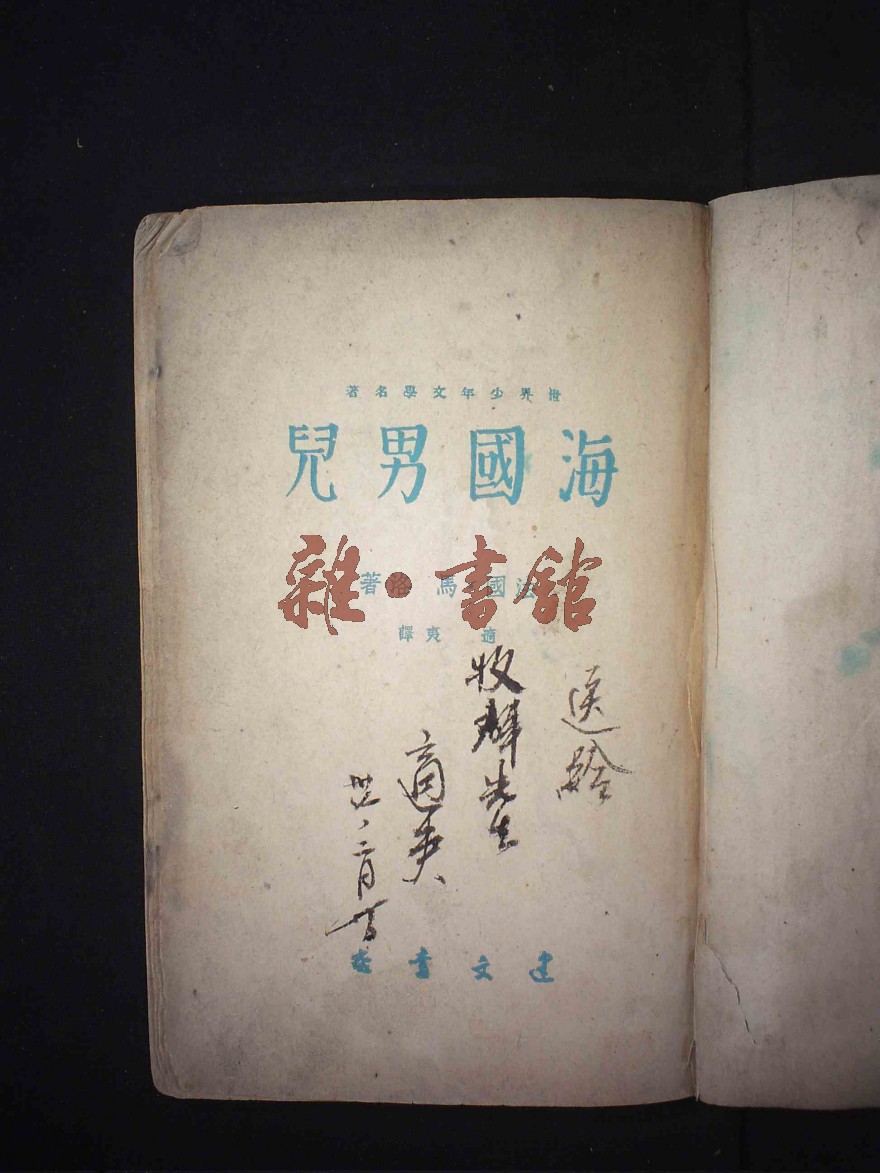 世界少年文學名著
海國男兒
法國馬洛著
雜·書館
適夷譯
送給
牧群先生
適夷
卅六、二月
建文書店